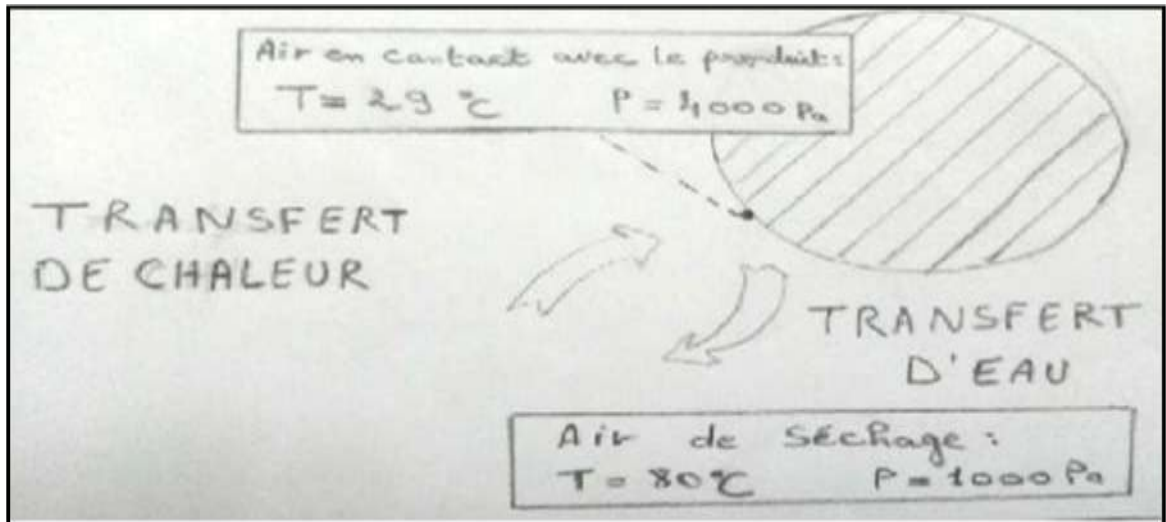 Air en contact avec le produit:
T = 29 °C P = 4000 Pa
TRANSFERT
DE CHALEUR
TRANSFERT
D'EAU
Air de séchage :
T = 80°C P = 1000 Pa